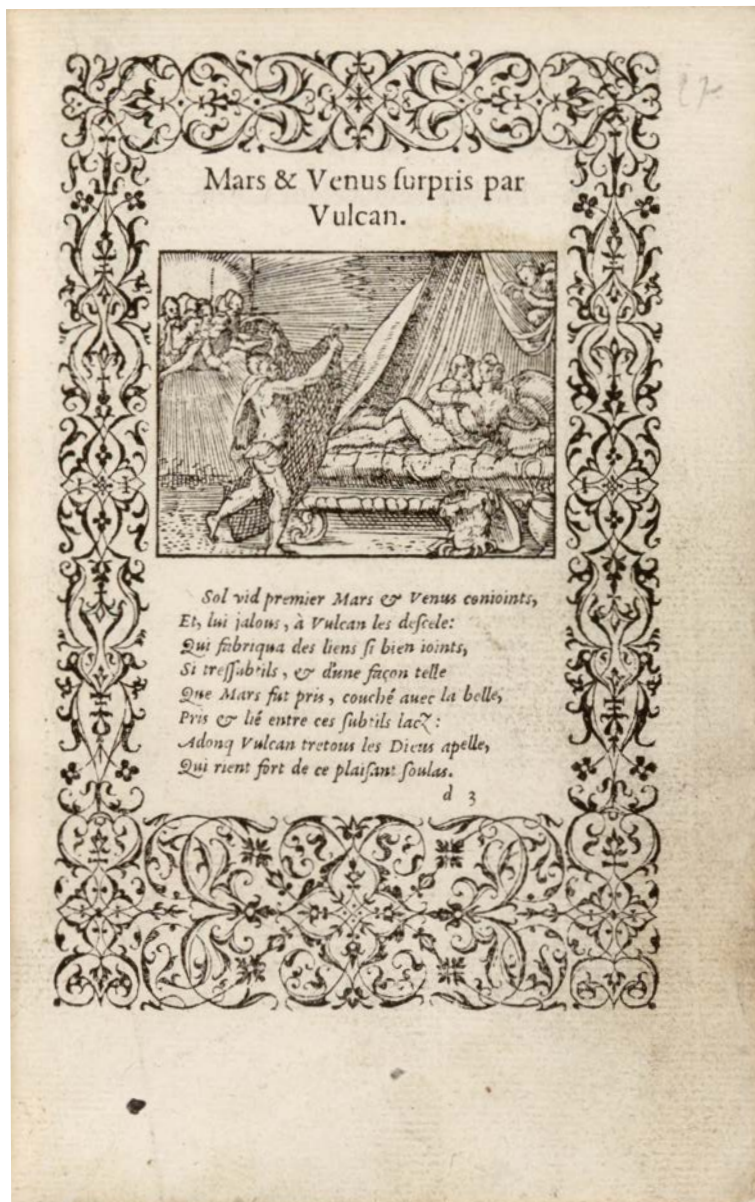 Mars & Venus ſurpris par
Vulcan.
Sol vid premier Mars & Venus conioints,
Et, lui jalous, à Vulcan les deſcele:
Qui fabriqua des liens ſi bien ioints,
Si treſſabtils, & d'une façon telle
Que Mars fut pris, couché auec la belle,
Pris & lié entre ces ſubtils lacz:
Adonq Vulcan tretous les Dieus apelle,
Qui rient fort de ce plaiſant ſoulas.
d 3